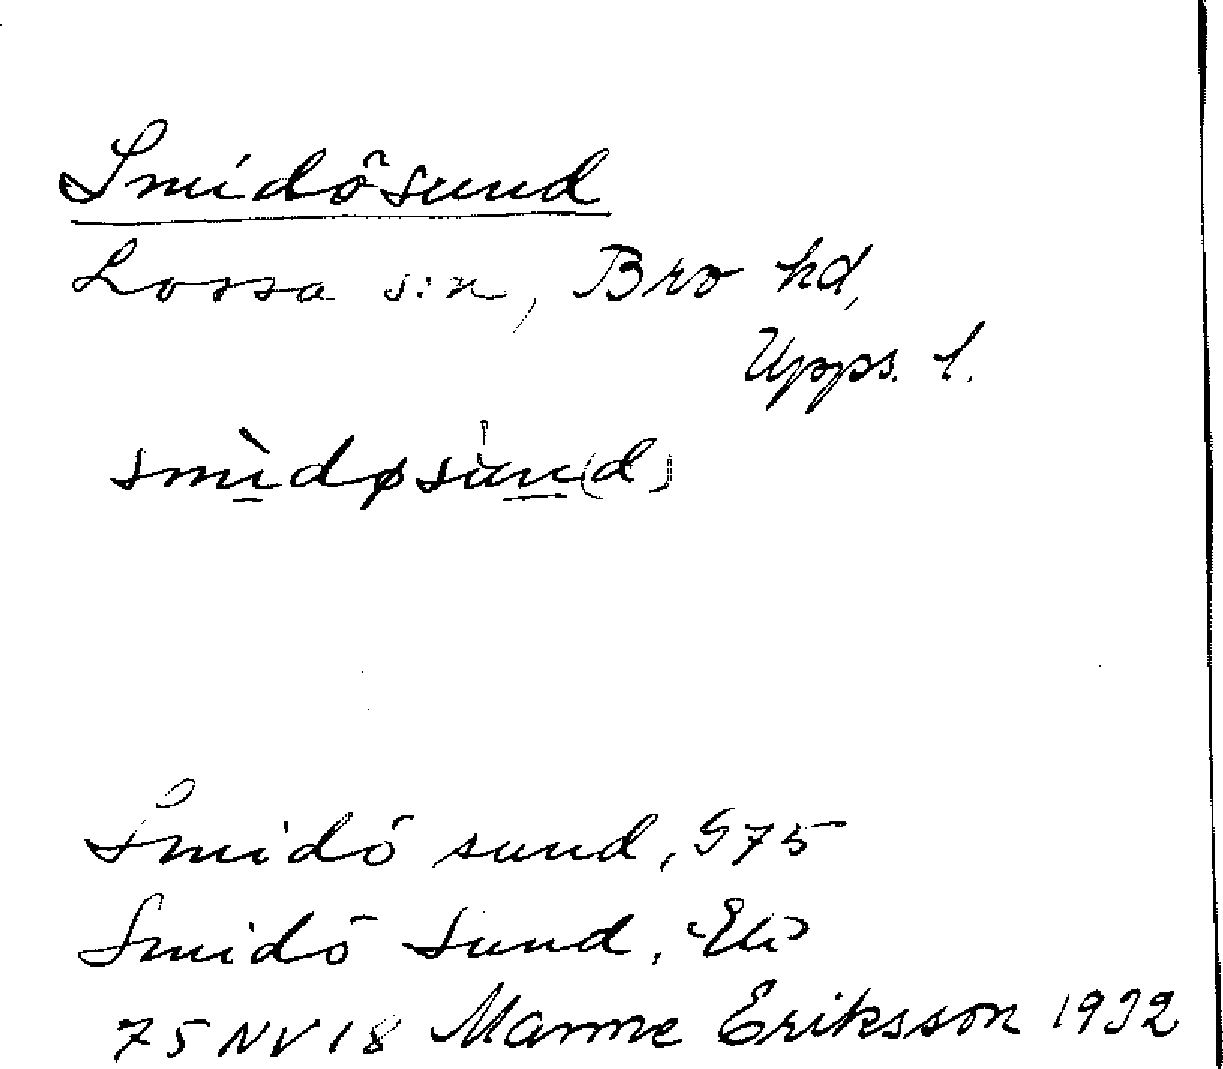 Smidösund
Lossa s:n, Bro hd,
Upps. l.
smìdøsùn(d)
Smidö sund, G75
Smidö Sund, Ek
75 NV 18 Manne Eriksson 1932